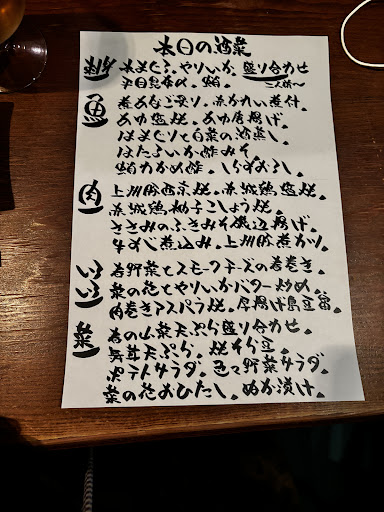 本日の酒菜
刺 本まぐろ、やりいか、盛り合わせ
平目昆布〆、鮪。 二人前〜
魚 煮あなご炙り。赤かれい煮付。
あゆ塩焼。あゆ唐揚げ。
はまぐりと白菜の酒蒸し。
ほたるいか酢みそ
鮪わかめ酢。しらすおろし。
肉 上州豚西京焼。赤城鶏塩焼。
赤城鶏柚子こしょう焼。
ささみのふきみそ磯辺揚げ。
牛すじ煮込み。上州豚煮カツ。
いろいろ 春野菜とスモークチーズの春巻き。
菜の花とやりいかバター炒め。
肉巻きアスパラ焼。厚揚げ 豆腐。
菜 春の山菜天ぷら盛り合わせ。
舞茸天ぷら。焼そら豆。
ポテトサラダ。色々野菜サラダ。
菜の花おひたし。ぬか漬け。